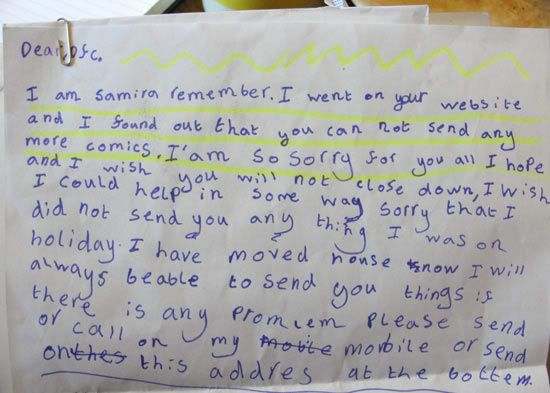 Dear, Dfc.
I am samira remember. I went on your website
and I found out that you can not send any
more comics. I'am so sorry for you all I hope
and I wish you will not close down, I wish
I could help in some way sorry that I
did not send you any thing I was on
holiday. I have moved house know I will
always beable to send you things is
there is any promlem please send
or call on my morbile or send
this addres at the bottem.